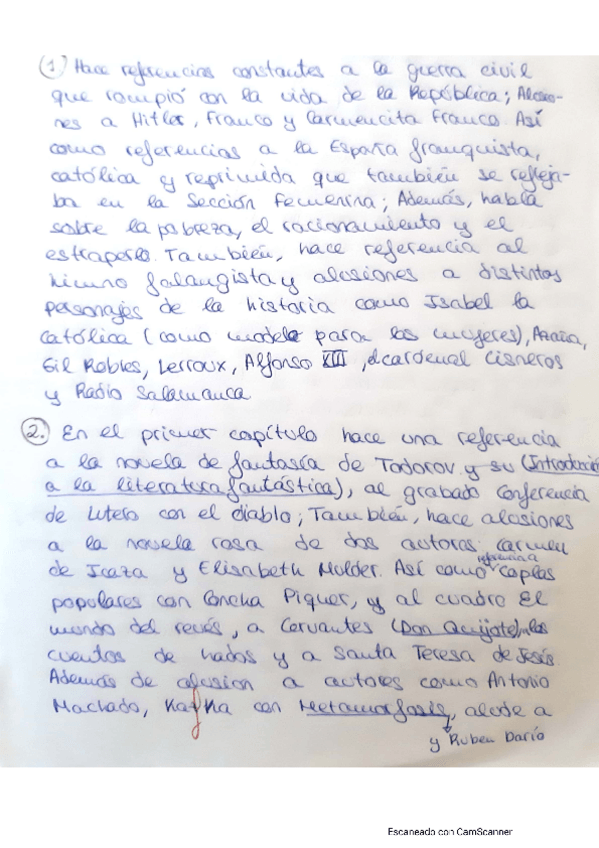 1) Hace referencias constantes a la guerra civil
que rompió con la vida de la República; Alusio-
nes a Hitler, Franco y Carmencita Franco. Así
como referencias a la España franquista,
católica y reprimida que también se refleja-
ba en la Sección Femenina; Además, habla
sobre la pobreza, el racionamiento y el
estraperlo. También, hace referencia al
himno falangista y alusiones a distintos
personajes de la historia como Isabel la
Católica (como modelo para las mujeres), Azaña,
Gil Robles, Lerroux, Alffonso XIII, el cardenal Cisneros
y Radio Salamanca
2. En el primer capítulo hace una referencia
a la novela de fantasía de Todorov y su (Introducció
a la literatura fantástica), al grabado Conferencia
de Lutero con el diablo; También, hace alusiones
a la novela rosa de dos autoras: Carmen
de Icaza y Elisabeth Mulder. Así como referencia a coplas
populares con Concha Piquer, y al cuadro El
mundo del revés, a Cervantes (Don Quijote), los
cuentos de hadas y a Santa Teresa de Jesús.
Además de alusión a autores como Antonio
Machado, Kafka con Metamorfosis, alude a
y Ruben Darío
Escaneado con CamScanner